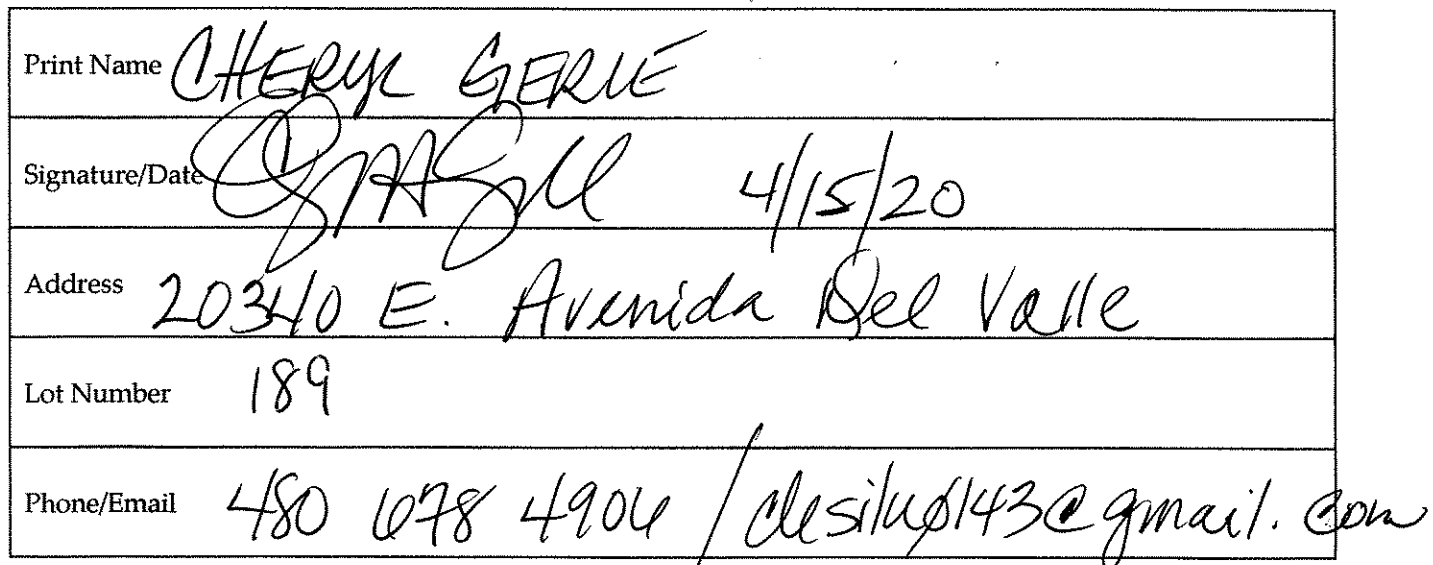 Print Name CHERYL GERLE
Signature/Date 4/15/20
Address 20340 E. Avenida Del Valle
Lot Number 189
Phone/Email 480 678 4906 / desilu0143@gmail.com